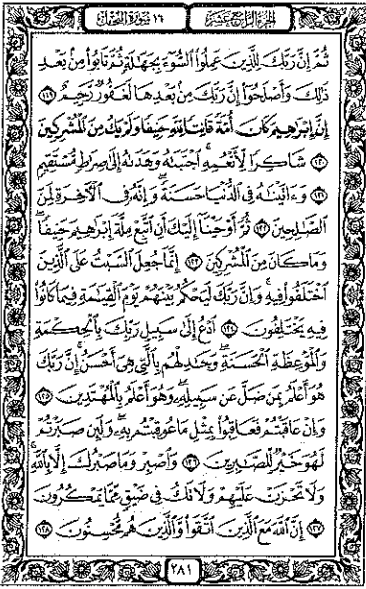 الجزء الرابع عشر ١٦ سورة النحل
ثُمَّ إِنَّ رَبَّكَ لِلَّذِينَ عَمِلُوا۟ ٱلسُّوٓءَ بِجَهَـٰلَةٍ ثُمَّ تَابُوا۟ مِنۢ بَعْدِ
ذَٰلِكَ وَأَصْلَحُوٓا۟ إِنَّ رَبَّكَ مِنۢ بَعْدِهَا لَغَفُورٌ رَّحِيمٌ ١١٩
إِنَّ إِبْرَٰهِيمَ كَانَ أُمَّةً قَانِتًا لِّلَّهِ حَنِيفًا وَلَمْ يَكُ مِنَ ٱلْمُشْرِكِينَ
١٢٠ شَاكِرًا لِّأَنْعُمِهِ ٱجْتَبَىٰهُ وَهَدَىٰهُ إِلَىٰ صِرَٰطٍ مُّسْتَقِيمٍ
١٢١ وَءَاتَيْنَـٰهُ فِى ٱلدُّنْيَا حَسَنَةً وَإِنَّهُۥ فِى ٱلْـَٔاخِرَةِ لَمِنَ
ٱلصَّـٰلِحِينَ ١٢٢ ثُمَّ أَوْحَيْنَآ إِلَيْكَ أَنِ ٱتَّبِعْ مِلَّةَ إِبْرَٰهِيمَ حَنِيفًا
وَمَا كَانَ مِنَ ٱلْمُشْرِكِينَ ١٢٣ إِنَّمَا جُعِلَ ٱلسَّبْتُ عَلَى ٱلَّذِينَ
ٱخْتَلَفُوا۟ فِيهِ وَإِنَّ رَبَّكَ لَيَحْكُمُ بَيْنَهُمْ يَوْمَ ٱلْقِيَـٰمَةِ فِيمَا كَانُوا۟
فِيهِ يَخْتَلِفُونَ ١٢٤ ٱدْعُ إِلَىٰ سَبِيلِ رَبِّكَ بِٱلْحِكْمَةِ
وَٱلْمَوْعِظَةِ ٱلْحَسَنَةِ وَجَـٰدِلْهُم بِٱلَّتِى هِىَ أَحْسَنُ إِنَّ رَبَّكَ
هُوَ أَعْلَمُ بِمَن ضَلَّ عَن سَبِيلِهِۦ وَهُوَ أَعْلَمُ بِٱلْمُهْتَدِينَ ١٢٥
وَإِنْ عَاقَبْتُمْ فَعَاقِبُوا۟ بِمِثْلِ مَا عُوقِبْتُم بِهِۦ وَلَئِن صَبَرْتُمْ
لَهُوَ خَيْرٌ لِّلصَّـٰبِرِينَ ١٢٦ وَٱصْبِرْ وَمَا صَبْرُكَ إِلَّا بِٱللَّهِ
وَلَا تَحْزَنْ عَلَيْهِمْ وَلَا تَكُ فِى ضَيْقٍ مِّمَّا يَمْكُرُونَ
١٢٧ إِنَّ ٱللَّهَ مَعَ ٱلَّذِينَ ٱتَّقَوا۟ وَّٱلَّذِينَ هُم مُّحْسِنُونَ ١٢٨
٢٨١